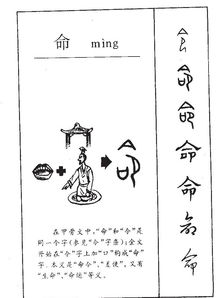 命 ming
在甲骨文中，“命”和“令”是
同一个字（参见“令”字条）；金文
开始在“令”字上加“口”构成“命”
字。本义是“命令”、“差使”。又有
“生命”、“命运”等义。